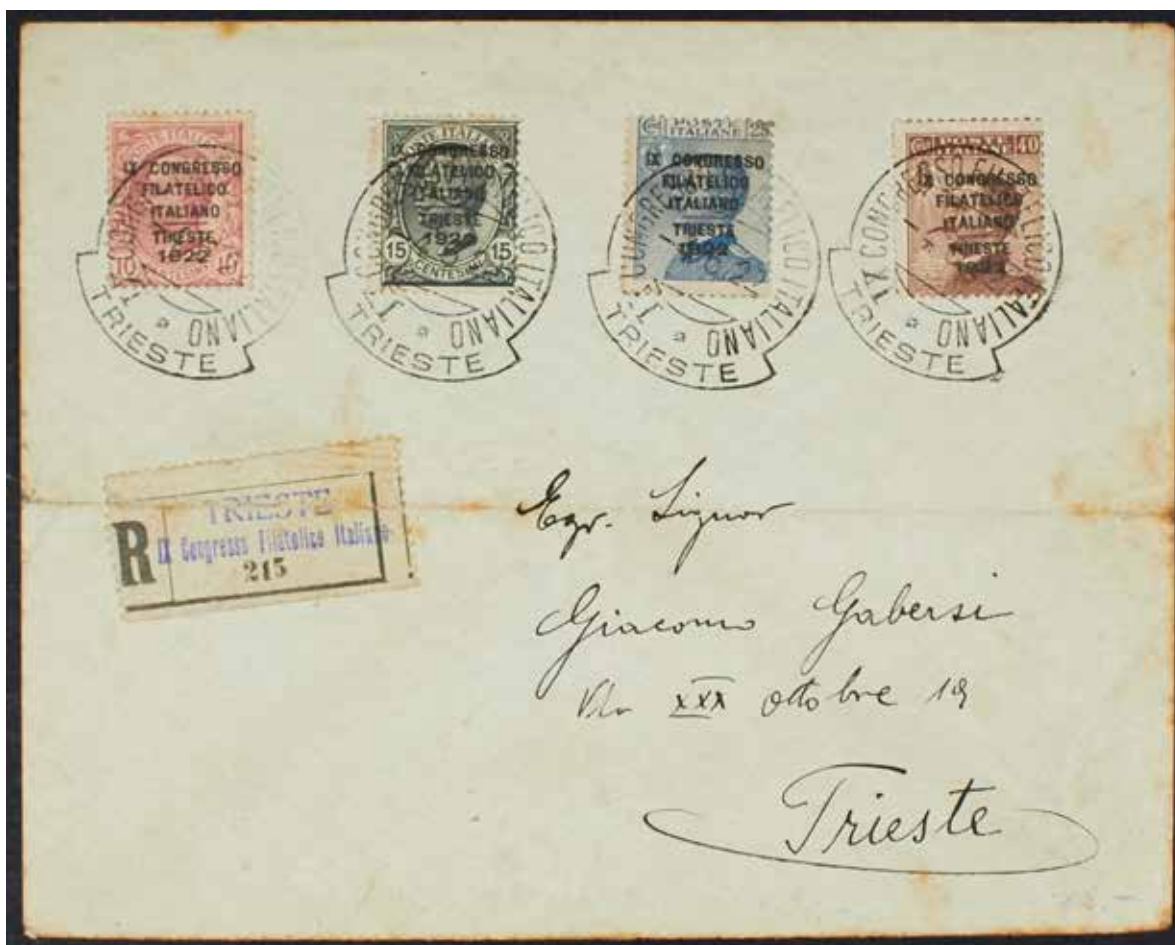 IX CONGRESSO
FILATELICO
ITALIANO
TRIESTE
1922
10
POSTE ITALIANE
IX CONGRESSO
FILATELICO
ITALIANO
TRIESTE
1922
15 15
CENTESIMI
POSTE
ITALIANE 25
IX CONGRESSO
FILATELICO
ITALIANO
TRIESTE
1922
40
IX CONGRESSO
FILATELICO
ITALIANO
TRIESTE
1922
ITALIANO
TRIESTE
IX CONGRESSO FILATELICO ITALIANO
TRIESTE
IX CONGRESSO FILATELICO ITALIANO
TRIESTE
IX CONGRESSO FILATELICO ITALIANO
TRIESTE
R
TRIESTE
IX Congresso Filatelico Italiano
215
Egr. Signor
Giacomo Gabersi
Via XXX ottobre 19
Trieste